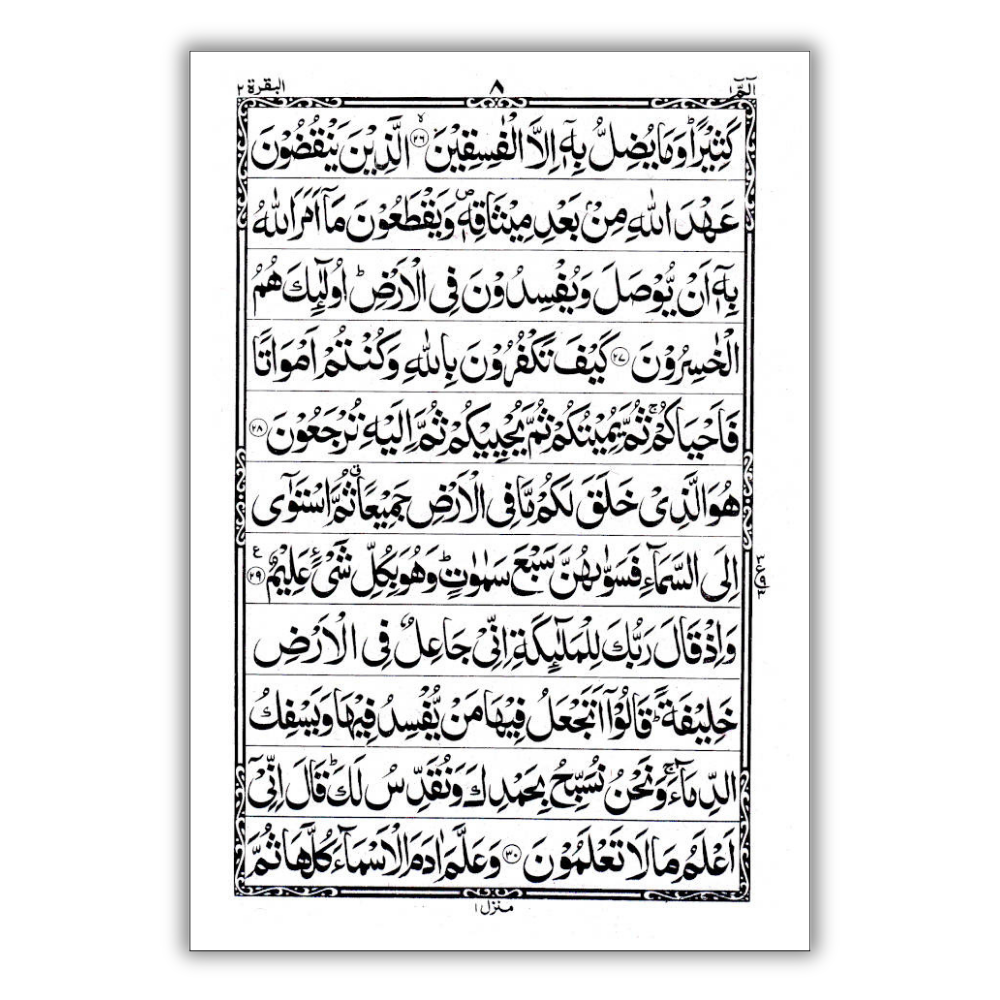 الٓمّٓ ١ ٨ البقرة ٢
كَثِيْرًا ؕ وَمَا يُضِلُّ بِهٖۤ اِلَّا الْفٰسِقِيْنَ ﴿٢٦﴾ ۙ الَّذِيْنَ يَنْقُضُوْنَ
عَهْدَ اللّٰهِ مِنْۢ بَعْدِ مِيْثَاقِهٖ ۪ وَيَقْطَعُوْنَ مَاۤ اَمَرَ اللّٰهُ
بِهٖۤ اَنْ يُّوْصَلَ وَيُفْسِدُوْنَ فِى الْاَرْضِ ؕ اُولٰٓئِكَ هُمُ
الْخٰسِرُوْنَ ﴿٢٧﴾ كَيْفَ تَكْفُرُوْنَ بِاللّٰهِ وَكُنْتُمْ اَمْوَاتًا
فَاَحْيَاكُمْ ۚ ثُمَّ يُمِيْتُكُمْ ثُمَّ يُحْيِيْكُمْ ثُمَّ اِلَيْهِ تُرْجَعُوْنَ ﴿٢٨﴾
هُوَ الَّذِىْ خَلَقَ لَكُمْ مَّا فِى الْاَرْضِ جَمِيْعًا ۗ ثُمَّ اسْتَوٰۤى
اِلَى السَّمَآءِ فَسَوّٰىهُنَّ سَبْعَ سَمٰوٰتٍ ؕ وَهُوَ بِكُلِّ شَىْءٍ عَلِيْمٌ ﴿٢٩﴾ ع
وَاِذْ قَالَ رَبُّكَ لِلْمَلٰٓئِكَةِ اِنِّىْ جَاعِلٌ فِى الْاَرْضِ
خَلِيْفَةً ؕ قَالُوْۤا اَتَجْعَلُ فِيْهَا مَنْ يُّفْسِدُ فِيْهَا وَيَسْفِكُ
الدِّمَآءَ ۚ وَنَحْنُ نُسَبِّحُ بِحَمْدِكَ وَنُقَدِّسُ لَكَ ؕ قَالَ اِنِّىْۤ
اَعْلَمُ مَا لَا تَعْلَمُوْنَ ﴿٣٠﴾ وَعَلَّمَ اٰدَمَ الْاَسْمَآءَ كُلَّهَا ثُمَّ
منزل ١